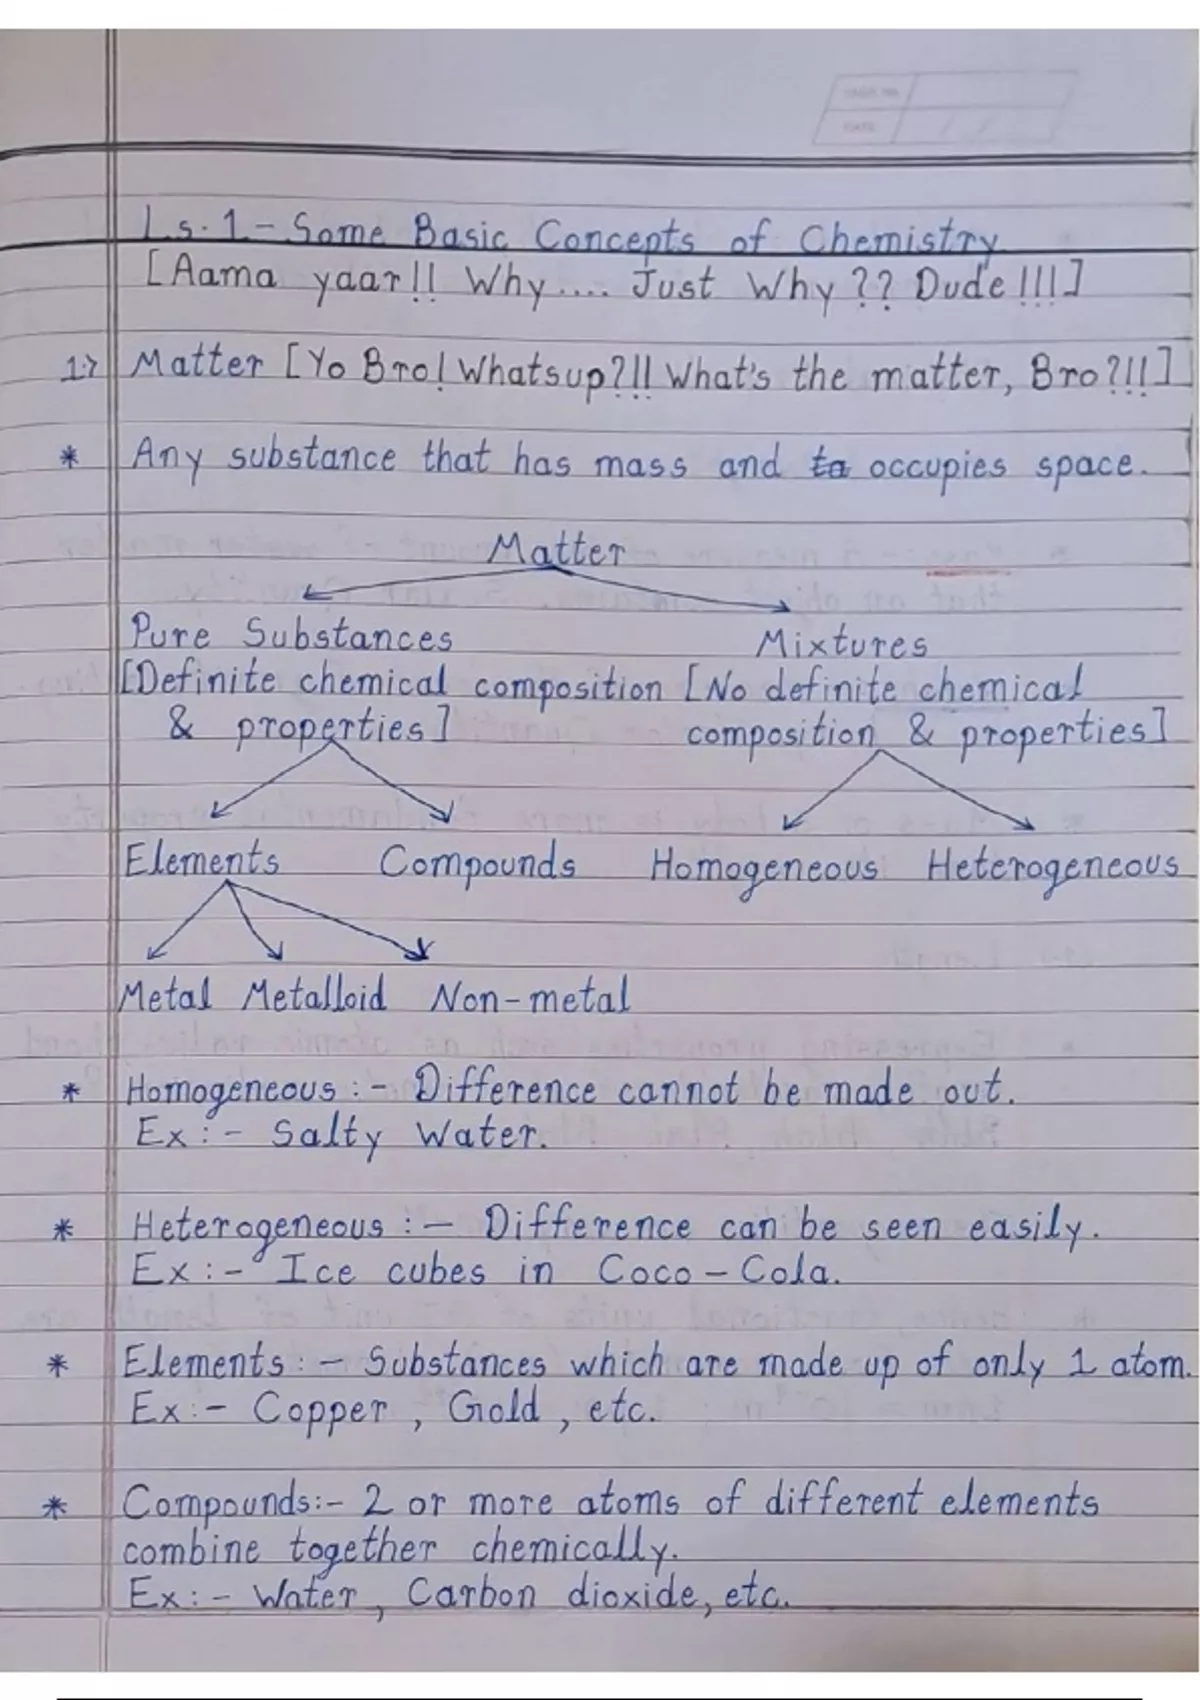 Ls. 1 - Some Basic Concepts of Chemistry
[Aama yaar!! Why.... Just Why?? Dude!!!]
1.> Matter [Yo Bro! Whatsup?!! What's the matter, Bro?!!]
* Any substance that has mass and to occupies space.
Matter
Pure Substances Mixtures
[Definite chemical composition [No definite chemical
& properties] composition & properties]
Elements Compounds Homogeneous Heterogeneous
Metal Metalloid Non-metal
* Homogeneous :- Difference cannot be made out.
Ex :- Salty Water.
* Heterogeneous :- Difference can be seen easily.
Ex :- Ice cubes in Coco-Cola.
* Elements :- Substances which are made up of only 1 atom.
Ex :- Copper, Gold, etc.
* Compounds:- 2 or more atoms of different elements
combine together chemically.
Ex :- Water, Carbon dioxide, etc.